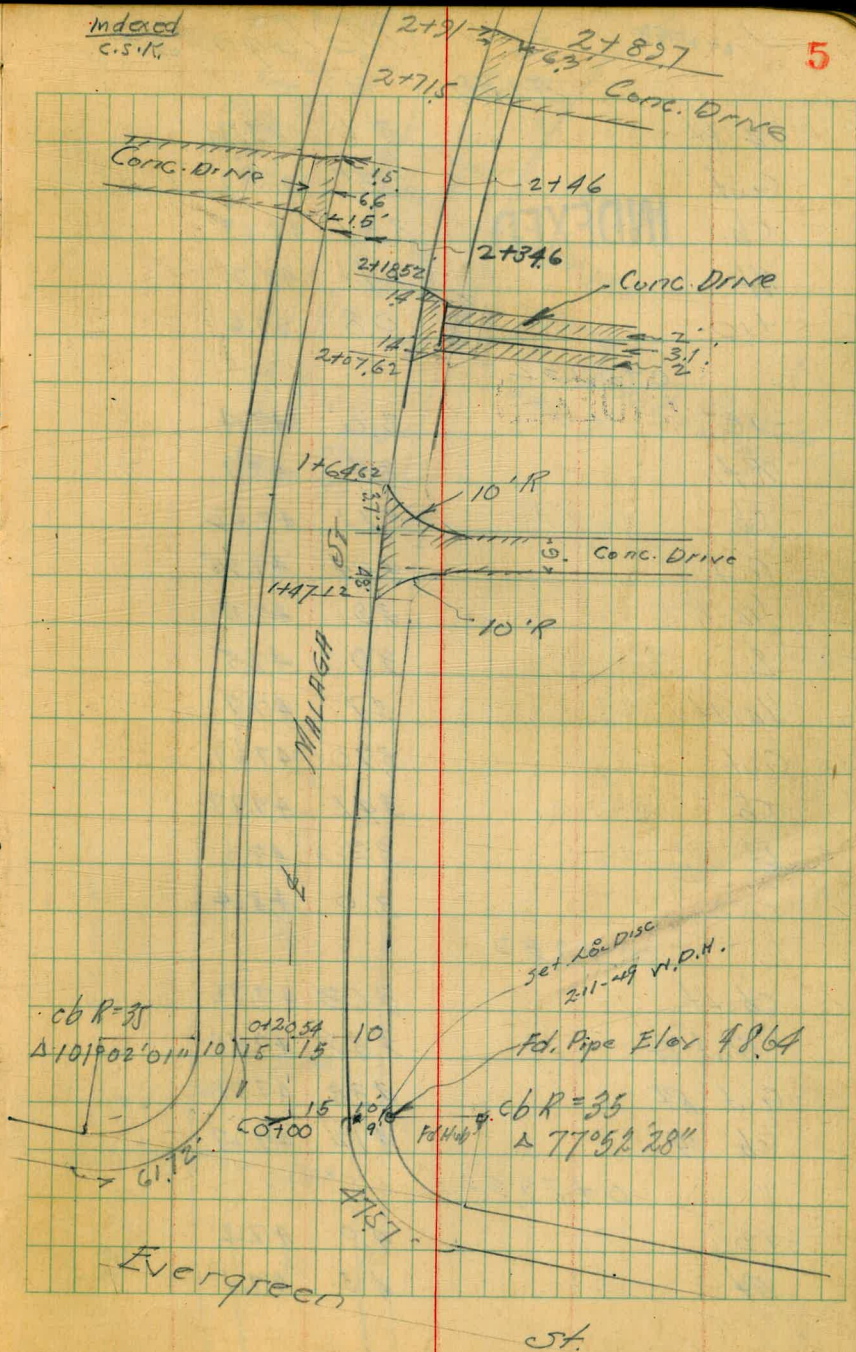 Indexed
C.S.K.
5
2+91
6.3'
2+82.7
2+71.5
Conc. Drive
Conc. Drive
1.5
6.6
1.5'
2+46
2+34.6
2+18.52
1.4
Conc. Drive
2'
3.1'
2
1.4
2+07.62
1+64.62
3.7'
10'R
St
9'
Conc. Drive
4.8'
1+47.12
10'R
MALAGA
Set Disc
2-11-49
cb R=35
Δ 101°02'01"
10
0+20.54
15
15
10
Fd. Pipe Elev 48.64
15
10'
9'
0+00
Fd Hub
cb R=35
Δ 77°52'28"
61.72'
47.57
Evergreen
St.